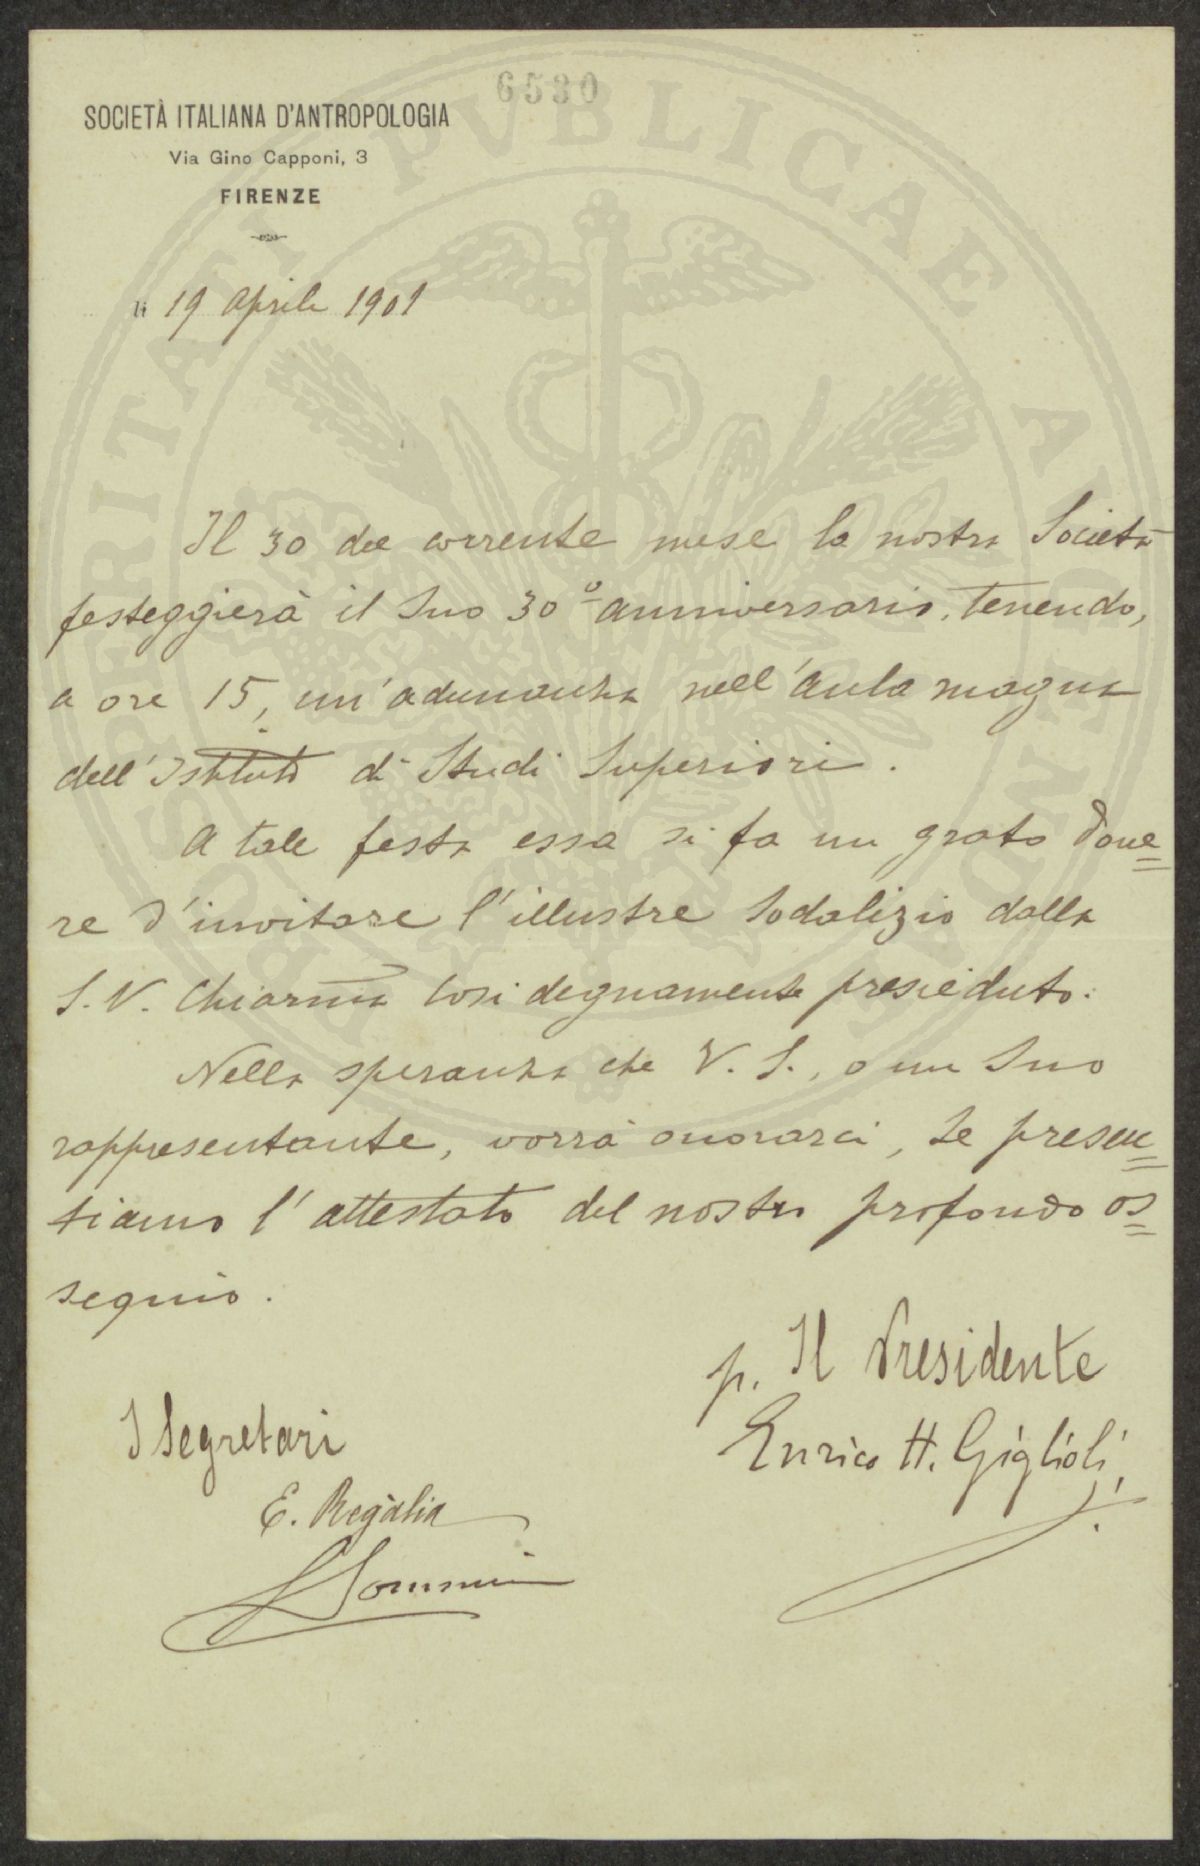 6530
SOCIETÀ ITALIANA D'ANTROPOLOGIA
Via Gino Capponi, 3
FIRENZE
li 19 Aprile 1901
Il 30 del corrente mese la nostra Società
festeggierà il Suo 30º anniversario, tenendo,
a ore 15, un'adunanza nell'Aula magna
dell'Istituto di Studi Superiori.
A tale festa essa si fa un grato dove=
re d'invitare l'illustre Sodalizio dalla
S. V. Chiarma così degnamente presieduto.
Nella speranza che V. S., o un Suo
rappresentante, vorrà onorarci, Le presen=
tiamo l'attestato del nostro profondo os=
sequio.
p. Il Presidente
Enrico H. Giglioli
I Segretari
E. Regàlia
S Sommier
PROSPERITATI PVBLICAE AVGENDAE